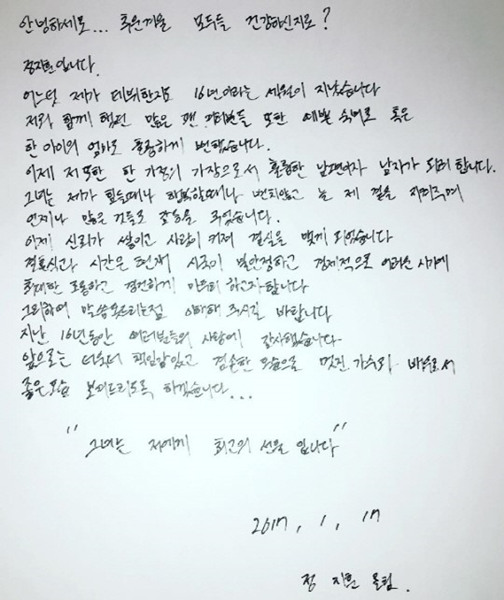 안녕하세요... 추운겨울 모두들 건강하신지요?
정지훈입니다.
어느덧 제가 데뷔한지도 16년이라는 세월이 지났습니다
저와 함께 했던 많은 팬 여러분들 또한 예쁜 숙녀로 혹은
한 아이의 엄마로 훌륭하게 변했습니다.
이제 저 또한 한 가정의 가장으로서 훌륭한 남편이자 남자가 되려 합니다.
그녀는 제가 힘들때나 행복할때나 변치않고 늘 제 곁을 지켜주며
언제나 많은 것들로 감동을 주었습니다.
이제 신뢰가 쌓이고 사랑이 커져 결실을 맺게 되었습니다
결혼식과 시간은 현재 시국이 불안정하고 경제적으로 어려운 시기에
최대한 조용하고 경건하게 마무리 하고자 합니다
그리하여 말씀 못드리는점 이해해 주시길 바랍니다
지난 16년동안 여러분들의 사랑에 감사했습니다
앞으로는 더욱더 책임감있고 겸손한 모습으로 멋진 가수와 배우로서
좋은모습 보여드리도록 하겠습니다...
"그녀는 저에게 최고의 선물 입니다"
2017, 1, 17
정 지훈 올림.